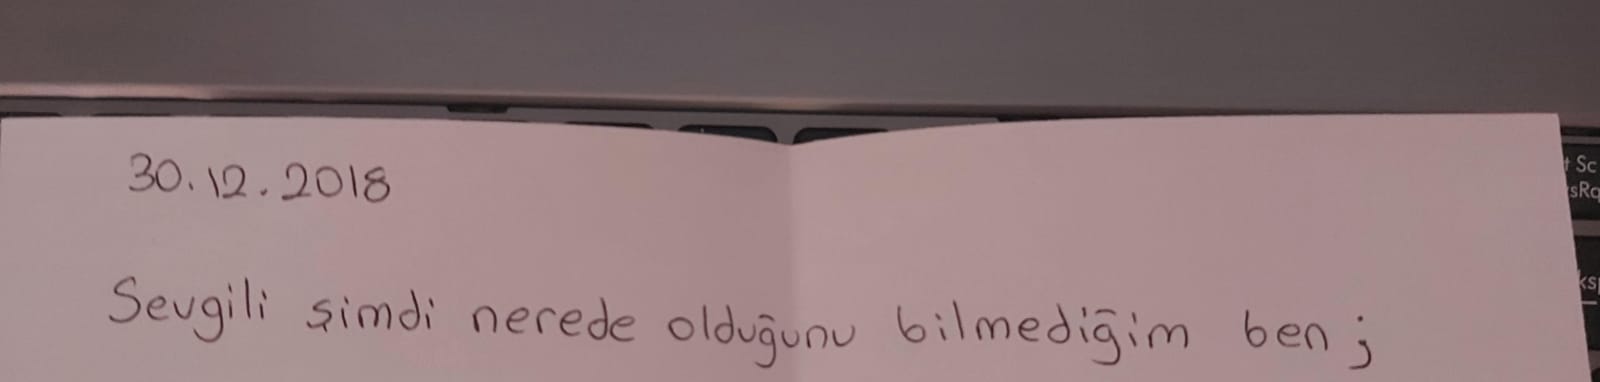 30.12.2018
Sevgili şimdi nerede olduğunu bilmediğim ben;
Sc